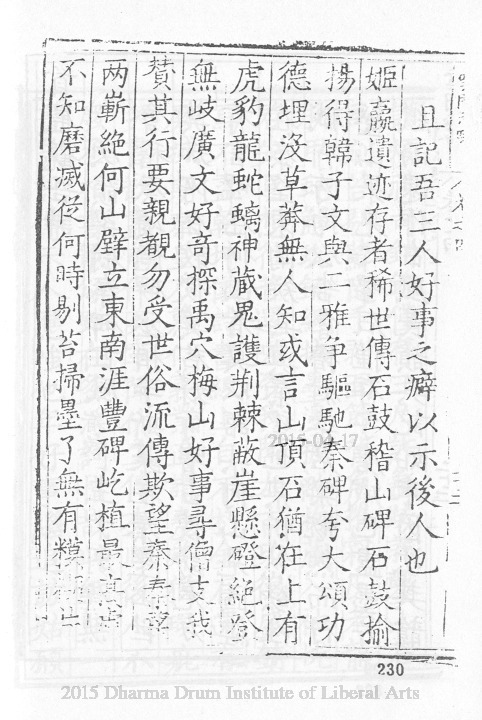 且記吾三人好事之癖以示後人也
姬嬴遺迹存者稀世傳石鼓稽山碑石鼓揄
揚得韓子文與二雅争驅馳秦碑夸大頌功
德埋沒草莽無人知或言山頂石猶在上有
虎豹龍蛇螭神蔵鬼護荆棘蔽崖懸磴絕登
無岐廣文好竒探禹穴梅山好事尋僧支我
賛其行要親覩勿受世俗流傳欺望秦秦望
两嶄絕何山壁立東南涯豐碑屹植最髙
不知磨滅從何時剔苔掃墨了無有糢
2015-04-17
230
2015 Dharma Drum Institute of Liberal Arts